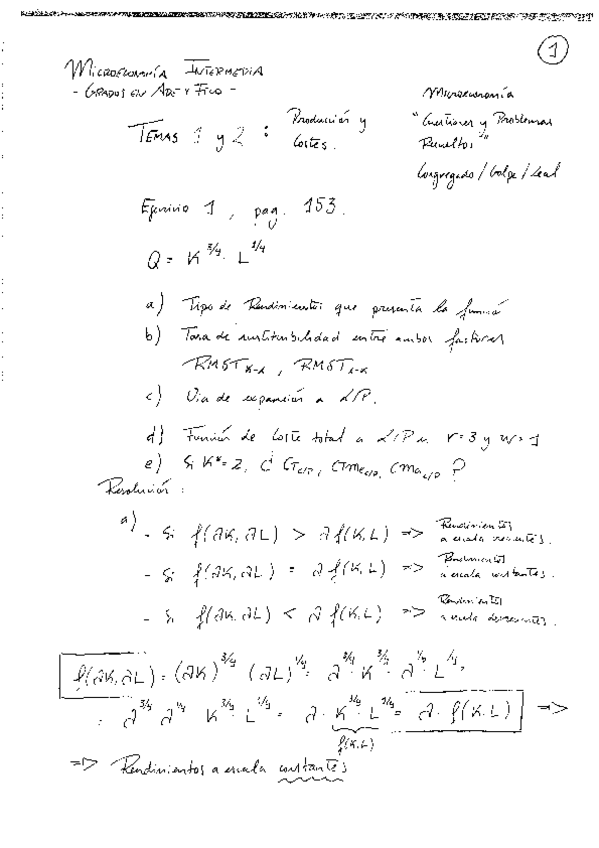 1
Microeconomía Intermedia
- Grados en Ade y Fico -
Temas 1 y 2 : Producción y Costes.
Microeconomía
"Cuestiones y Problemas
Resueltos"
Congregado / Golpe / Leal
Ejercicio 1, pag. 153.
Q = K^3/4 · L^1/4
a) Tipo de Rendimientos que presenta la función
b) Tasa de sustituibilidad entre ambos factores
RMST_K-L, RMST_L-K
c) Vía de expansión a L/P.
d) Función de Coste total a L/P si r=3 y w=1
e) Si K*=2, ¿ CT_C/P, CTMe_C/P, CMa_C/P ?
Resolución:
a) - Si f(λK, λL) > λ f(K, L) => Rendimientos a escala crecientes.
- Si f(λK, λL) = λ f(K, L) => Rendimientos a escala constantes.
- Si f(λK, λL) < λ f(K, L) => Rendimientos a escala decrecientes.
f(λK, λL) = (λK)^3/4 (λL)^1/4 = λ^3/4 · K^3/4 · λ^1/4 · L^1/4 =
= λ^3/4 λ^1/4 K^3/4 · L^1/4 = λ · K^3/4 · L^1/4 = λ · f(K, L) =>
f(K, L)
=> Rendimientos a escala constantes